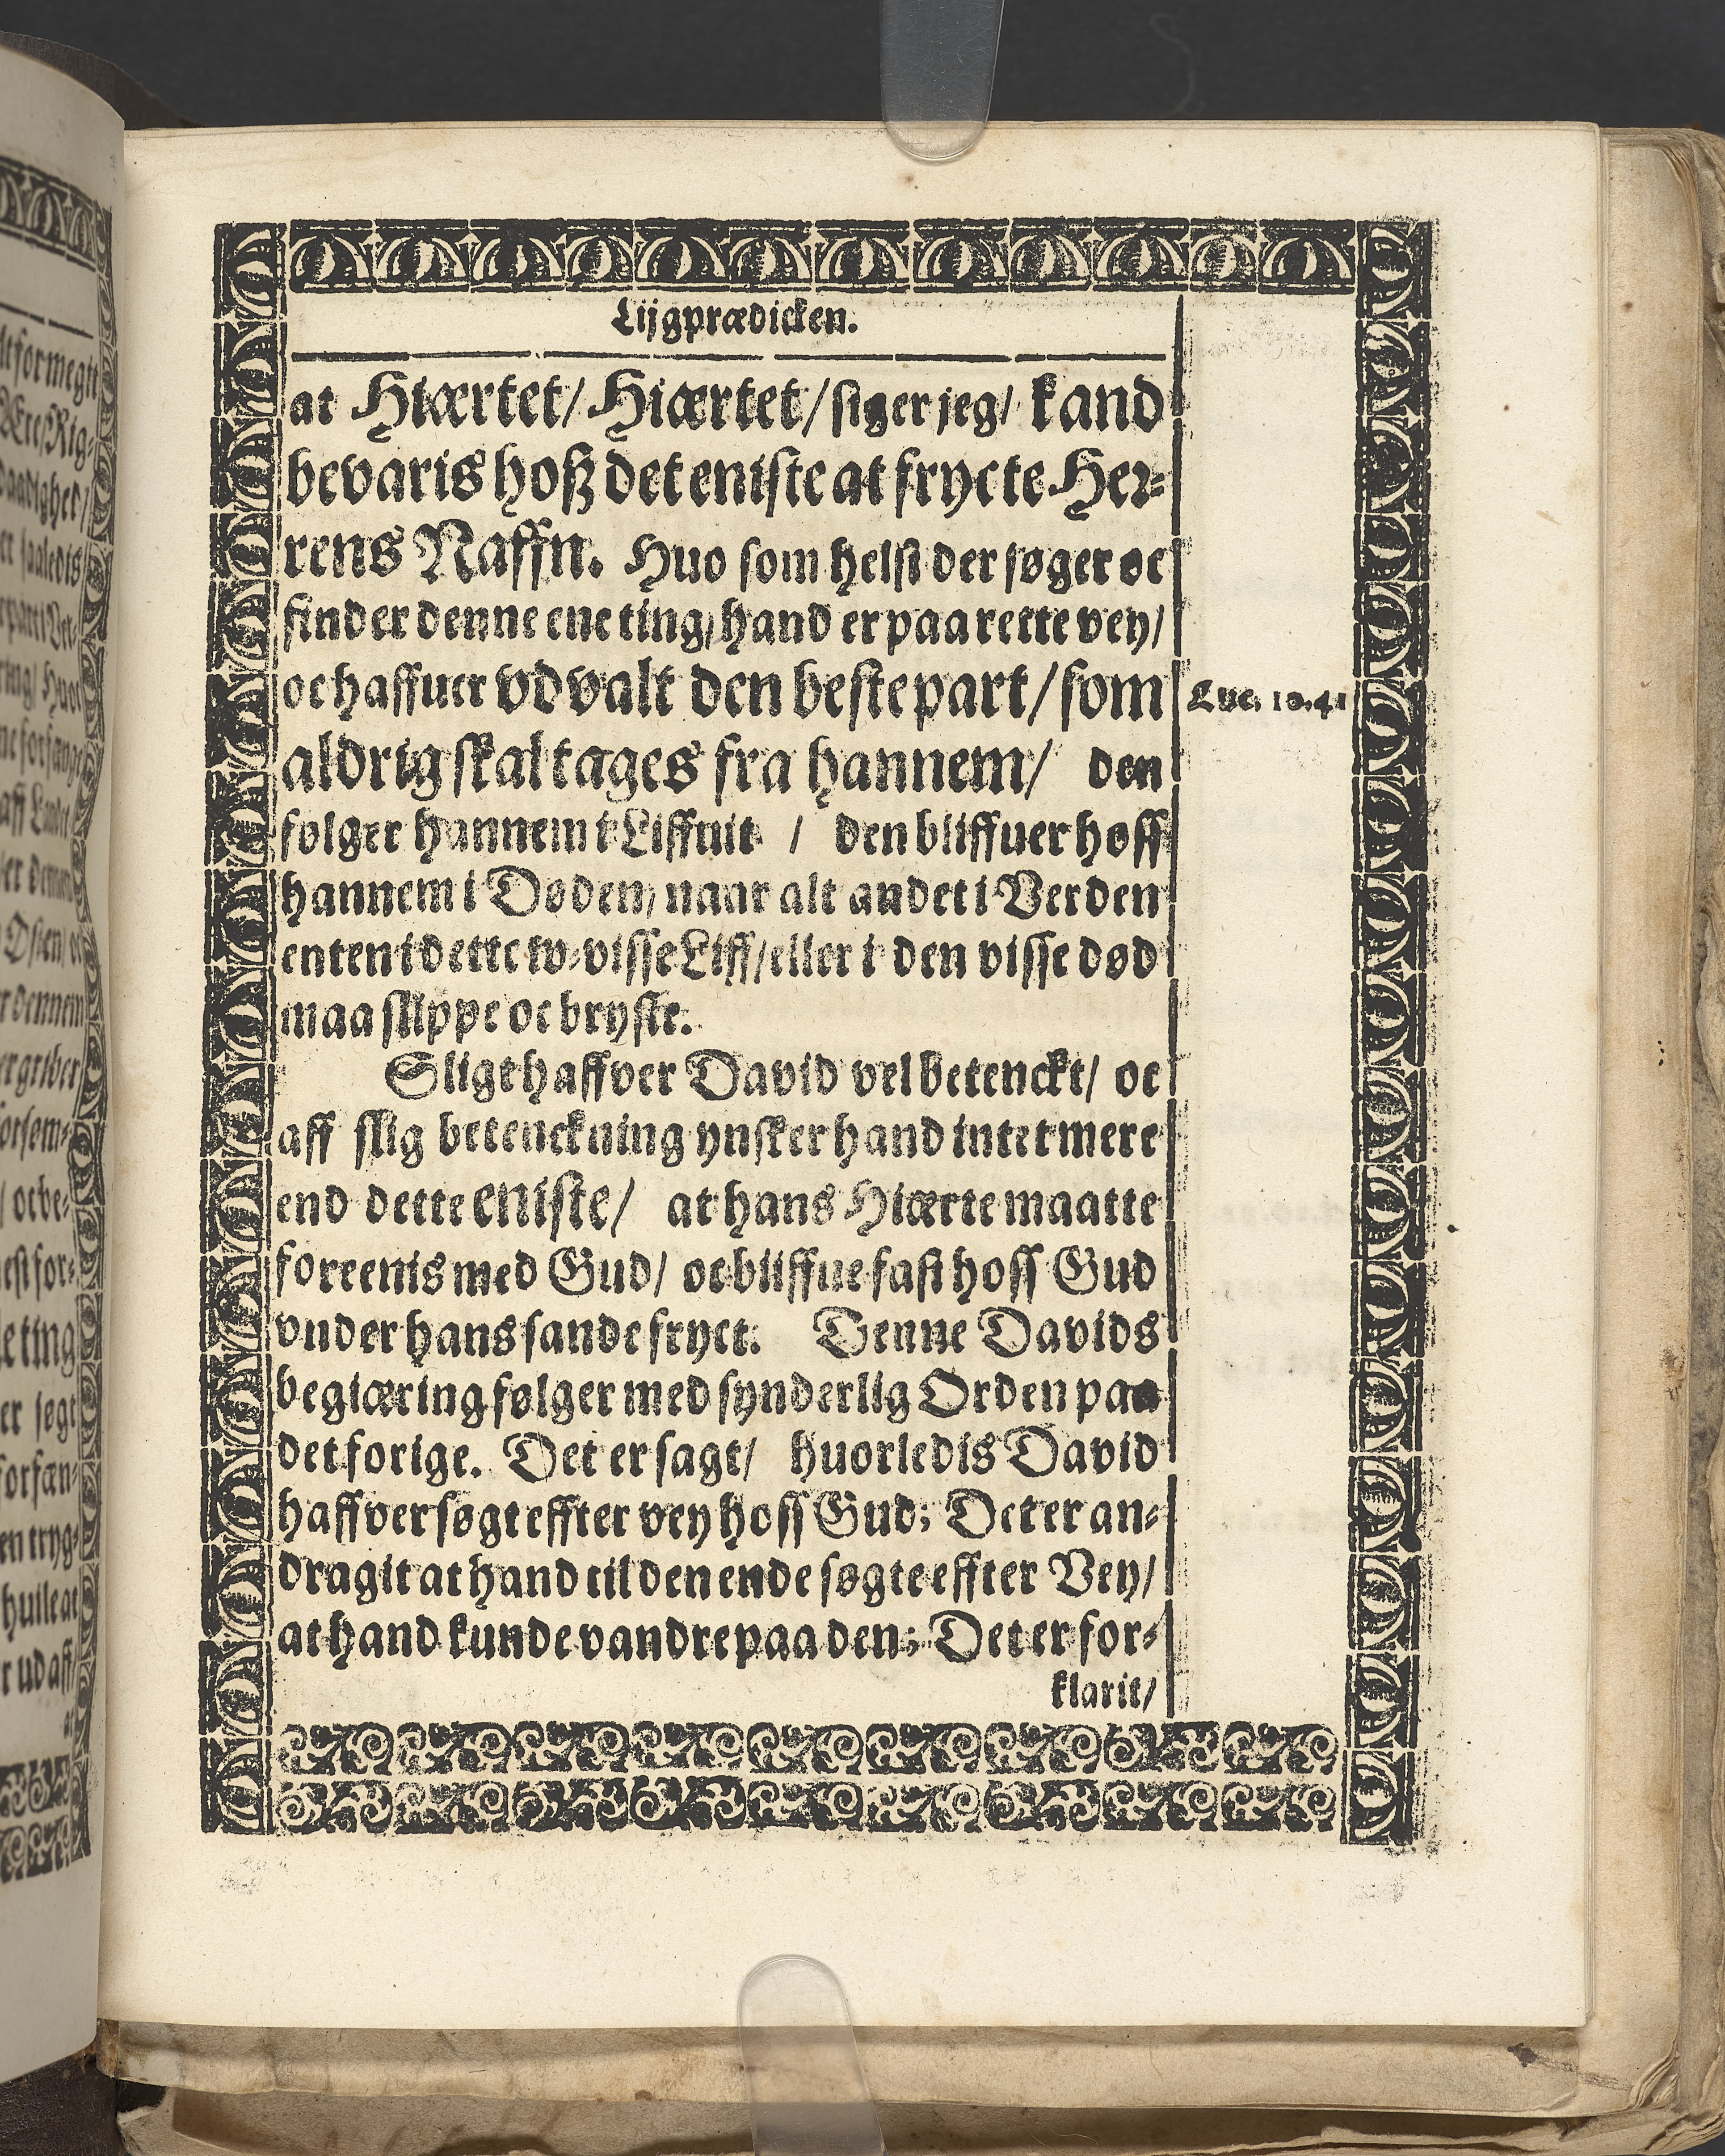 Lijgprædicken.
at Hiærtet/ Hiærtet/ siger jeg/ kand
bevaris hoß det eniste at frycte Her-
rens Naffn. Huo som helst der søger oc
finder denne ene ting/ hand er paa rette vey/
oc haffuer vdvalt den beste part/ som
Luc. 10.41
aldrig skal tages fra hannem/ den
følger hannem i Liffuit / den bliffuer hoss
hannem i Døden/ naar alt andet i Verden
enten i dette w-visse Liff/ eller i den visse død
maa slippe oc bryste.
Sligt haffver David vel betenckt/ oc
aff slig betenckning ynsker hand intet mere
end dette eniste/ at hans Hiærte maatte
foreenis med Gud/ oc bliffue fast hoss Gud
vnder hans sande fryct. Denne Davids
begiæring følger med synderlig Orden paa
det forige. Det er sagt/ huorledis David
haffver søgt effter vey hoss Gud; Det er an-
dragit at hand til den ende søgte effter Vey/
at hand kunde vandre paa den; Det er for-
klarit/